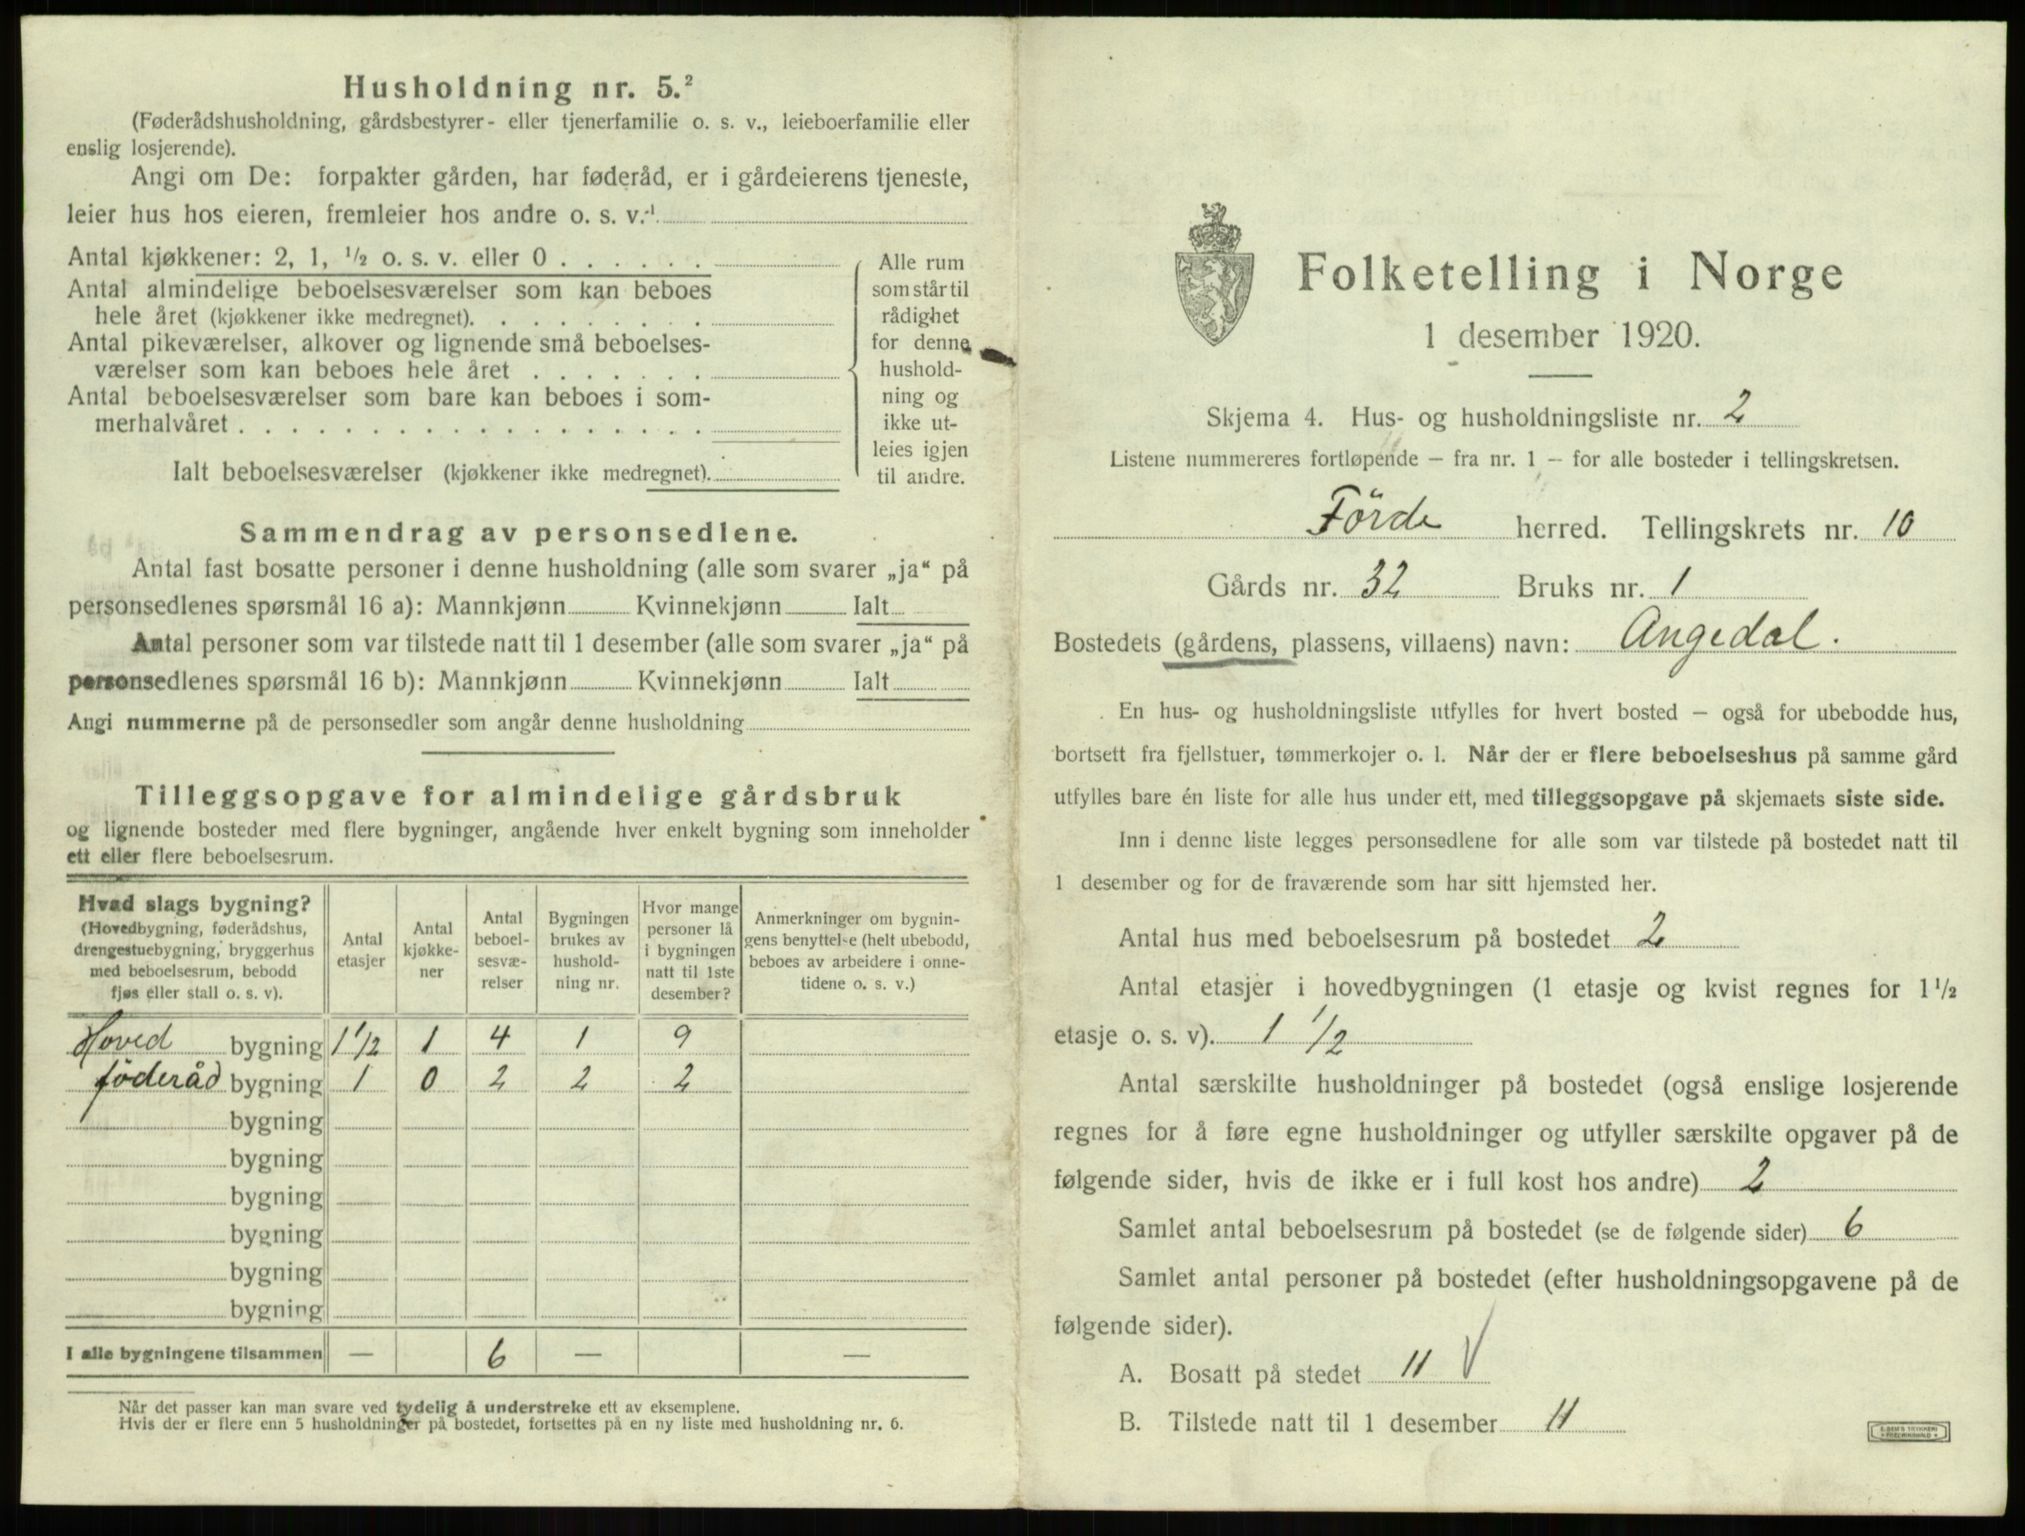 Husholdning nr. 5.²
(Føderådshusholdning, gårdsbestyrer- eller tjenerfamilie o. s. v., leieboerfamilie eller
enslig losjerende).
Angi om De: forpakter gården, har føderåd, er i gårdeierens tjeneste,
leier hus hos eieren, fremleier hos andre o. s. v.¹
Antal kjøkkener: 2, 1, ½ o. s. v. eller 0 . . . . . .
Antal almindelige beboelsesværelser som kan beboes
hele året (kjøkkener ikke medregnet). . . . . . . . .
Antal pikeværelser, alkover og lignende små beboelses-
værelser som kan beboes hele året . . . . . . .
Antal beboelsesværelser som bare kan beboes i som-
merhalvåret . . . . . . . . . . . . . . . . . .
Ialt beboelsesværelser (kjøkkener ikke medregnet).
Alle rum
som står til
rådighet
for denne
hushold-
ning og
ikke ut-
leies igjen
til andre.
Sammendrag av personsedlene.
Antal fast bosatte personer i denne husholdning (alle som svarer „ja“ på
personsedlenes spørsmål 16 a): Mannkjønn Kvinnekjønn Ialt
Antal personer som var tilstede natt til 1 desember (alle som svarer „ja“ på
personsedlenes spørsmål 16 b): Mannkjønn Kvinnekjønn Ialt
Angi nummerne på de personsedler som angår denne husholdning
Tilleggsopgave for almindelige gårdsbruk
og lignende bosteder med flere bygninger, angående hver enkelt bygning som inneholder
ett eller flere beboelsesrum.
Hvad slags bygning?
(Hovedbygning, føderådshus,
drengestuebygning, bryggerhus
med beboelsesrum, bebodd
fjøs eller stall o. s. v).
Antal
etasjer
Antal
kjøkke-
ner
Antal
beboel-
sesvæ-
relser
Bygningen
brukes av
hushold-
ning nr.
Hvor mange
personer lå
i bygningen
natt til 1ste
desember?
Anmerkninger om bygnin-
gens benyttelse (helt ubebodd,
beboes av arbeidere i onne-
tidene o. s. v.)
Hoved bygning 1 1/2 1 4 1 9
föderåd bygning 1 0 2 2 2
bygning
bygning
bygning
bygning
bygning
bygning
I alle bygningene tilsammen — 6 — —
Når det passer kan man svare ved tydelig å understreke ett av eksemplene.
Hvis der er flere enn 5 husholdninger på bostedet, fortsettes på en ny liste med husholdning nr. 6.
Folketelling i Norge
1 desember 1920.
Skjema 4. Hus- og husholdningsliste nr. 2
Listene nummereres fortløpende — fra nr. 1 — for alle bosteder i tellingskretsen.
Förde herred. Tellingskrets nr. 10
Gårds nr. 32 Bruks nr. 1
Bostedets (gårdens, plassens, villaens) navn: Angedal.
En hus- og husholdningsliste utfylles for hvert bosted — også for ubebodde hus,
bortsett fra fjellstuer, tømmerkojer o. l. Når der er flere beboelseshus på samme gård
utfylles bare én liste for alle hus under ett, med tilleggsopgave på skjemaets siste side.
Inn i denne liste legges personsedlene for alle som var tilstede på bostedet natt til
1 desember og for de fraværende som har sitt hjemsted her.
Antal hus med beboelsesrum på bostedet 2
Antal etasjer i hovedbygningen (1 etasje og kvist regnes for 1½
etasje o. s. v). 1 1/2
Antal særskilte husholdninger på bostedet (også enslige losjerende
regnes for å føre egne husholdninger og utfyller særskilte opgaver på de
følgende sider, hvis de ikke er i full kost hos andre) 2
Samlet antal beboelsesrum på bostedet (se de følgende sider) 6
Samlet antal personer på bostedet (efter husholdningsopgavene på de
følgende sider).
A. Bosatt på stedet 11 √
B. Tilstede natt til 1 desember 11